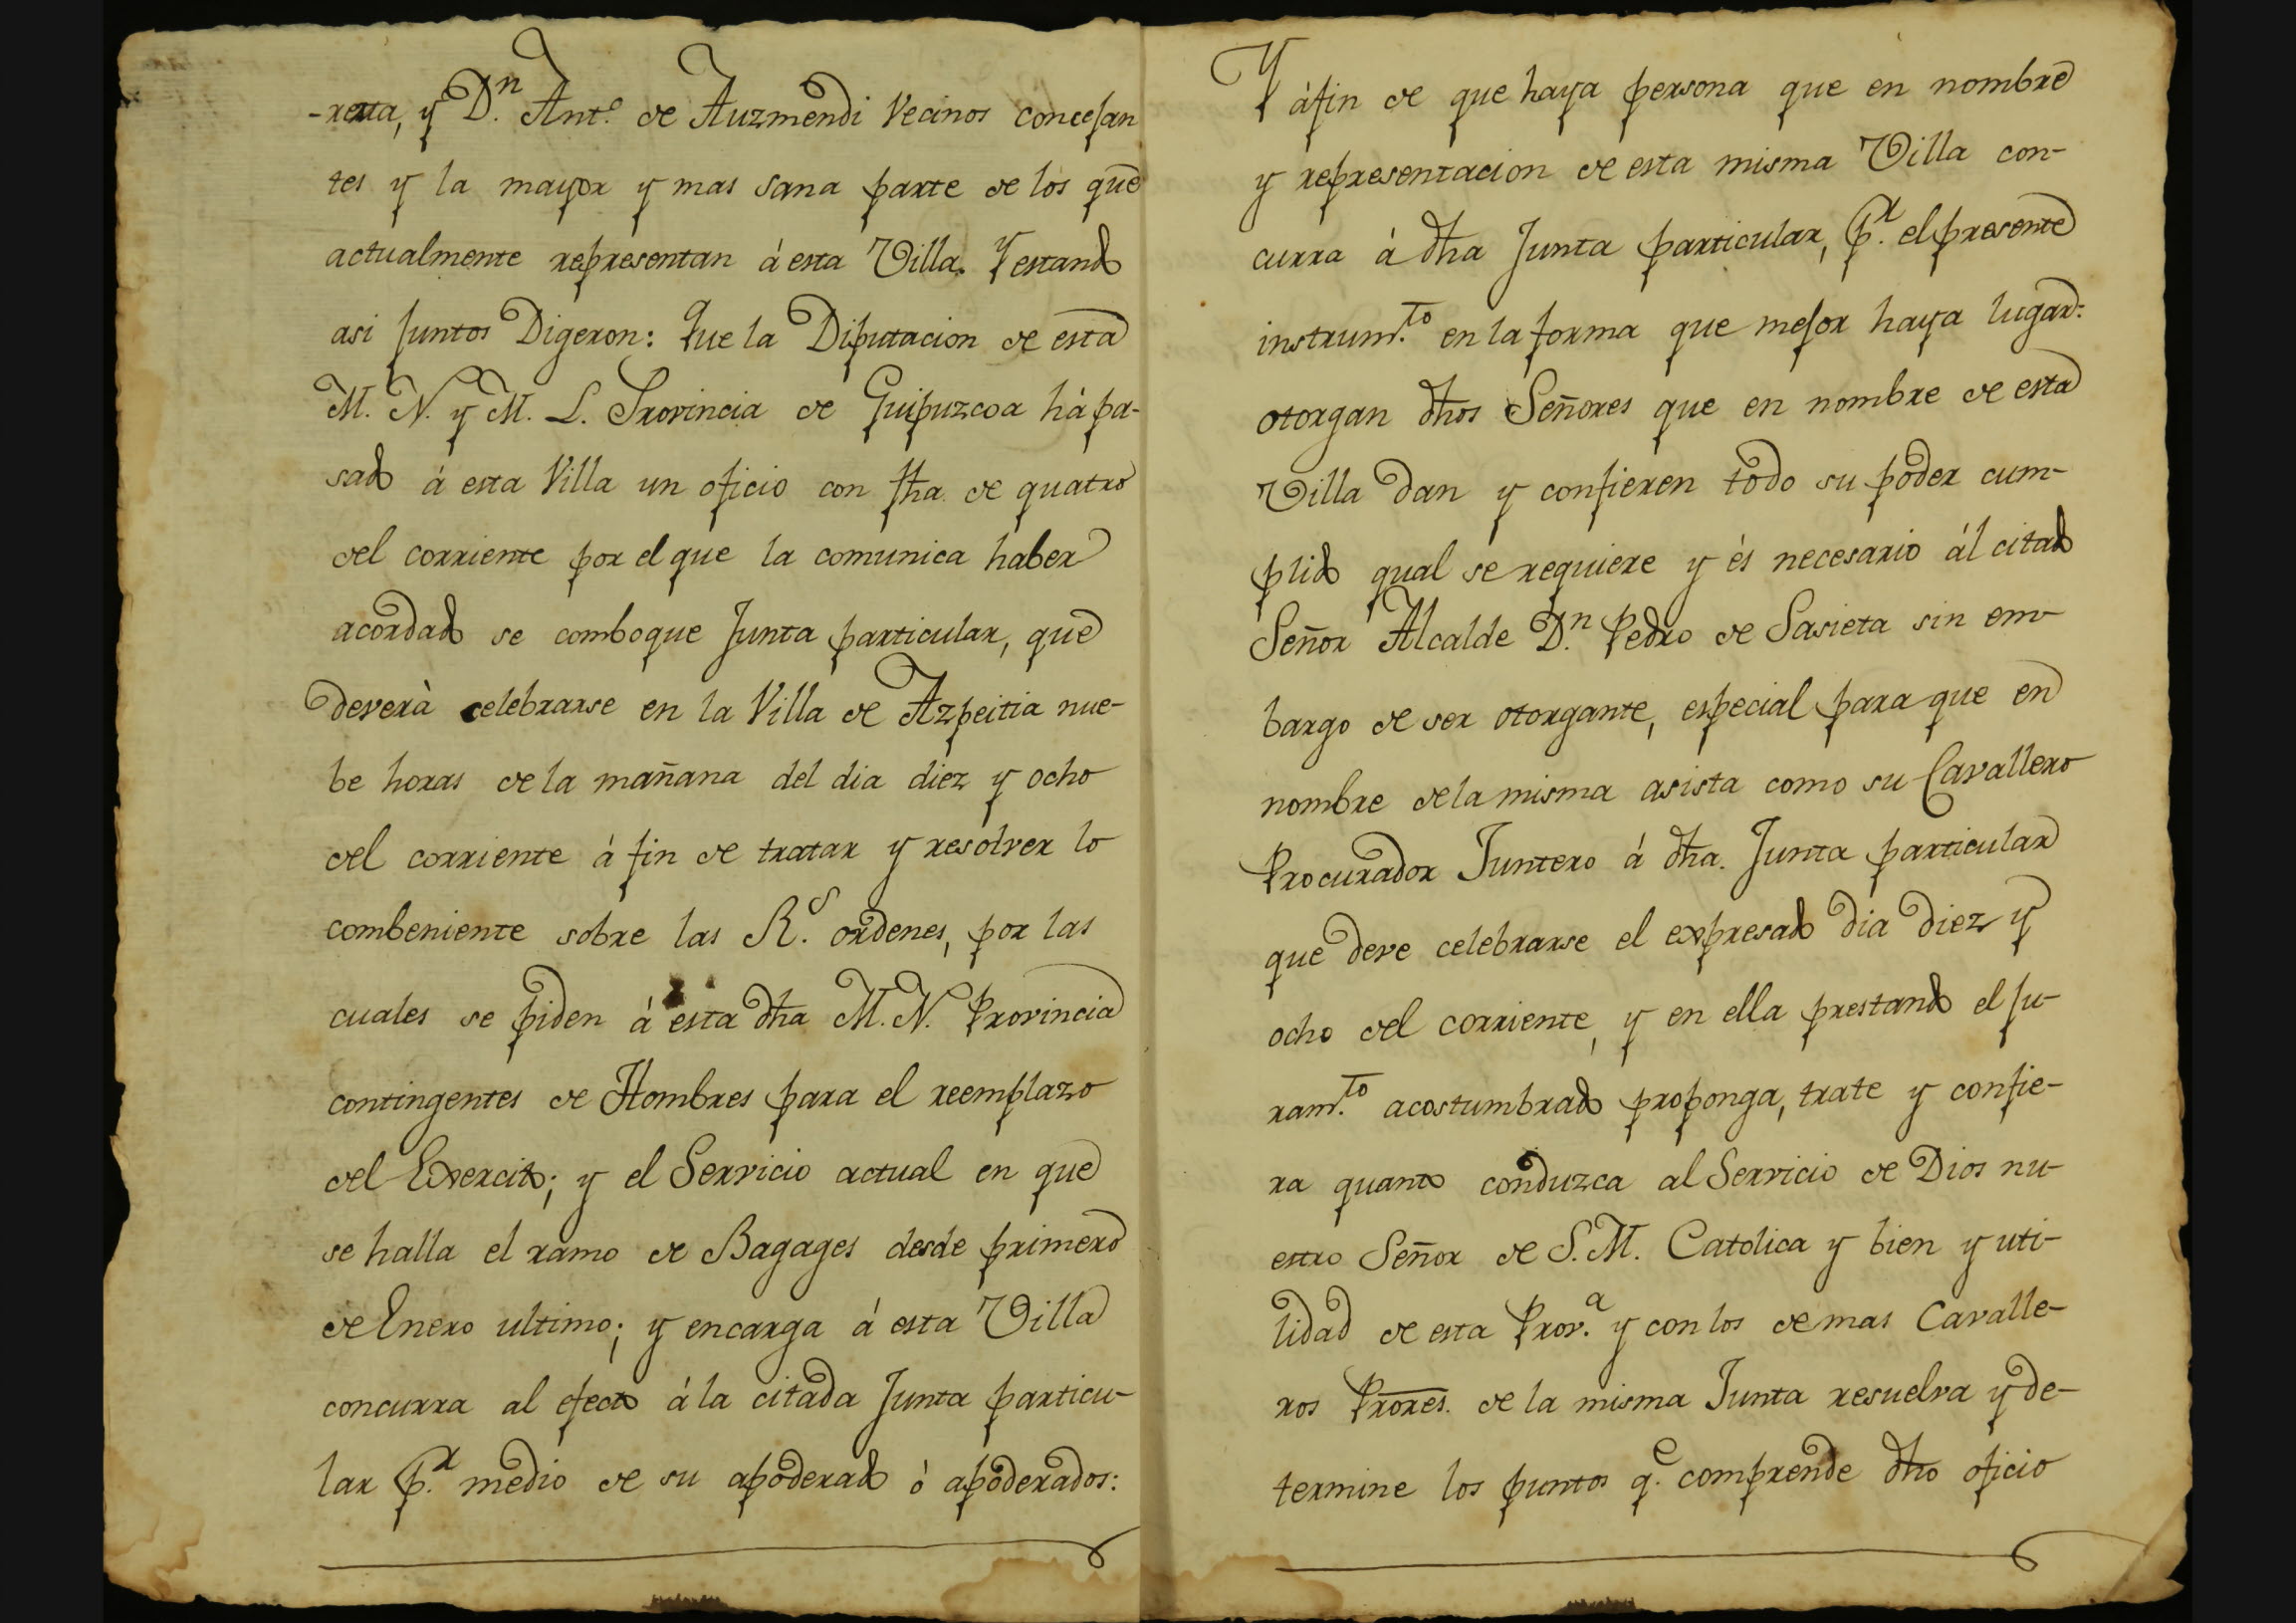 -reta, y D.n Ant.o de Auzmendi Vecinos concejan
tes y la mayor y mas sana parte de los que
actualmente representan á esta Villa. Y estando
asi juntos Digeron: Que la Diputacion de esta
M. N. y M. L. Provincia de Guipuzcoa há pa-
sado á esta Villa un oficio con fha de quatro
del corriente por el que la comunica haber
acordado se comboque Junta particular, que
deverà celebrarse en la Villa de Azpeitia nue-
be horas de la mañana del dia diez y ocho
del corriente á fin de tratar y resolver lo
combeniente sobre las R.s ordenes, por las
cuales se piden á esta dha M. N. Provincia
contingentes de Hombres para el reemplazo
del Exercito; y el Servicio actual en que
se halla el ramo de Bagages desde primero
de Enero ultimo; y encarga á esta Villa
concurra al efecto á la citada Junta particu-
lar p.r medio de su apoderado ó apoderados:
Y áfin de que haya persona que en nombre
y representacion de esta misma Villa con-
curra á dha Junta particular, p.r el presente
instrum.to en la forma que mejor haya lugar:
otorgan dhos Señores que en nombre de esta
Villa dan y confieren todo su poder cum-
plido qual se requiere y és necesario ál citado
Señor Alcalde D.n Pedro de Sasieta sin em-
bargo de ser otorgante, especial para que en
nombre de la misma asista como su Cavallero
Procurador Juntero á dha. Junta particular
que deve celebrarse el expresado dia diez y
ocho del corriente, y en ella prestando el ju-
ram.to acostumbrado proponga, trate y confie-
ra quanto conduzca al Servicio de Dios nu-
estro Señor de S. M. Catolica y bien y uti-
lidad de esta Prov.a y con los demas Cavalle-
ros Prores. de la misma Junta resuelva y de-
termine los puntos q.e comprende dho oficio